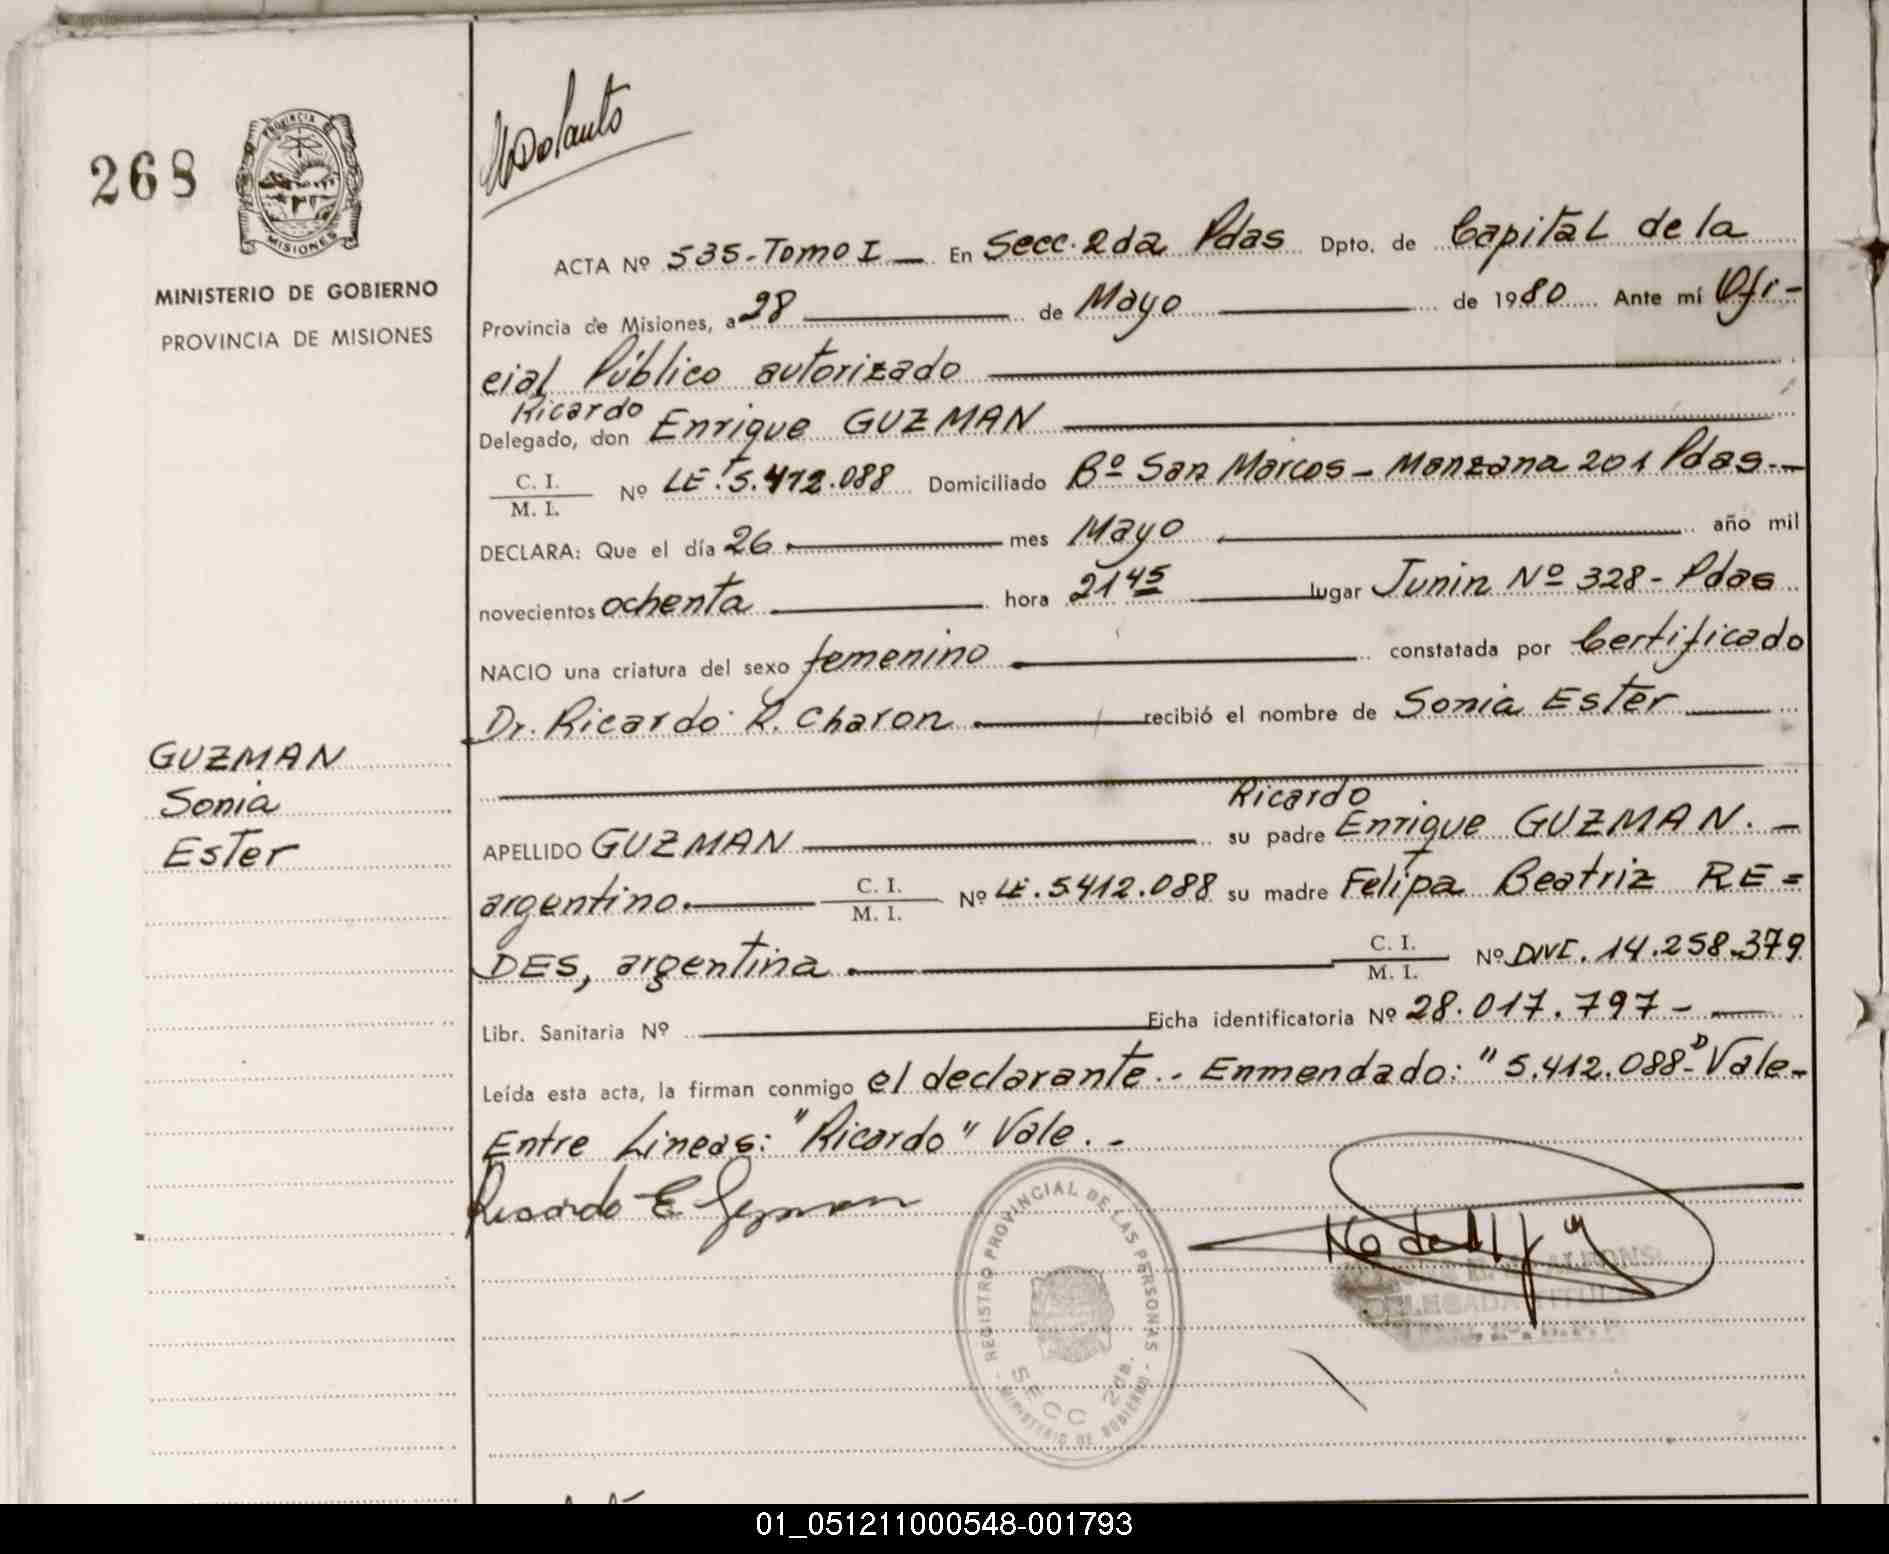 268
PROVINCIA DE
MISIONES
MINISTERIO DE GOBIERNO
PROVINCIA DE MISIONES
ACTA Nº 535-Tomo I — En Secc. 2da Pdas Dpto. de Capital de la
Provincia de Misiones, a 28 — de Mayo — de 1980 Ante mí Ofi-
cial Público autorizado —
Ricardo
Delegado, don Enrique GUZMAN —
C. I.
M. I. Nº LE. 5.412.088 Domiciliado Bº San Marcos - Manzana 201 Pdas. —
DECLARA: Que el día 26 — mes Mayo — año mil
novecientos ochenta — hora 21 45 — lugar Junin Nº 328 - Pdas
NACIO una criatura del sexo femenino — constatada por Certificado
Dr. Ricardo R. Charon — recibió el nombre de Sonia Ester —
GUZMAN
Sonia
Ester
Ricardo
APELLIDO GUZMAN — su padre Enrique GUZMAN. —
argentino. — C. I.
M. I. Nº LE. 5412.088 su madre Felipa Beatriz RE=
DES, argentina — C. I.
M. I. Nº DNI. 14.258.379
Libr. Sanitaria Nº — Ficha identificatoria Nº 28.017.797 - —
Leída esta acta, la firman conmigo el declarante.- Enmendado: "5.412.088" Vale-
Entre Lineas: "Ricardo" Vale. -
Ricardo E Guzman
REGISTRO PROVINCIAL DE LAS PERSONAS
SECC 2da.
MINISTERIO DE GOBIERNO
DELEGADA TITULAR
01_051211000548-001793